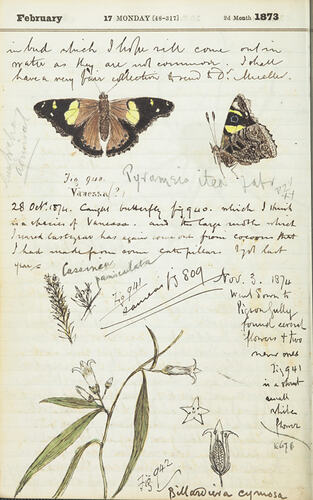 February 17 MONDAY (48-317) 2d Month 1873
in bud which I hope will come out in
water as they are not common. I shall
have a very fair collection to send to Dr. Mueller.
Fig 940.
Vanessa (?)
Pyrameis itea Fabr
28 Oct. 1874. Caught butterfly fig 940. which I think
is a species of Vanessa. and the large moth which
I reared last year has again come out from cocoons that
I had made from some caterpillar. I got last
year.
Caesarnea
paniculata
Fig 941
same as fig 809
Nov. 3. 1874
Went down to
Pigeon Gully
found several
flowers & two
new ones
Fig 941
is a short
small
white
flower
Fig 942
Billardiera cymosa